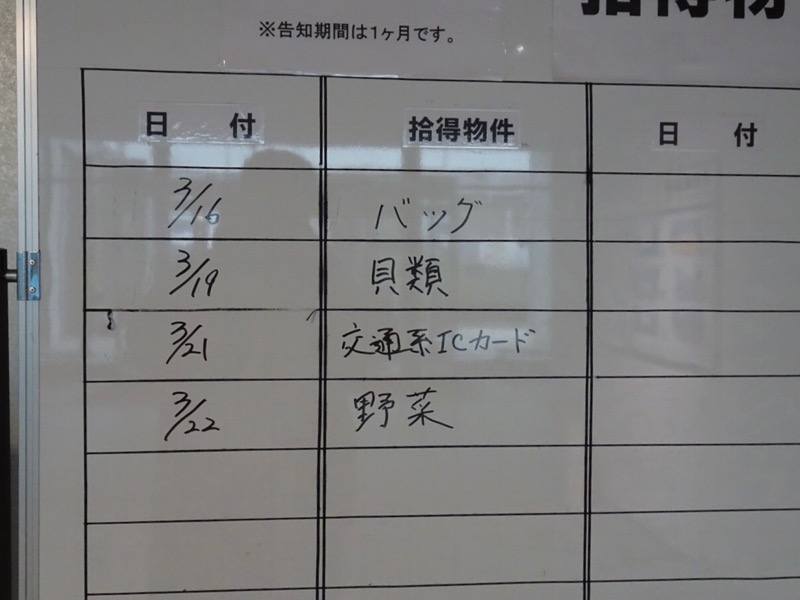 拾得物
※告知期間は1ヶ月です。
日 付 拾得物件 日 付
3/16 バッグ
3/19 貝類
3/21 交通系ICカード
3/22 野菜